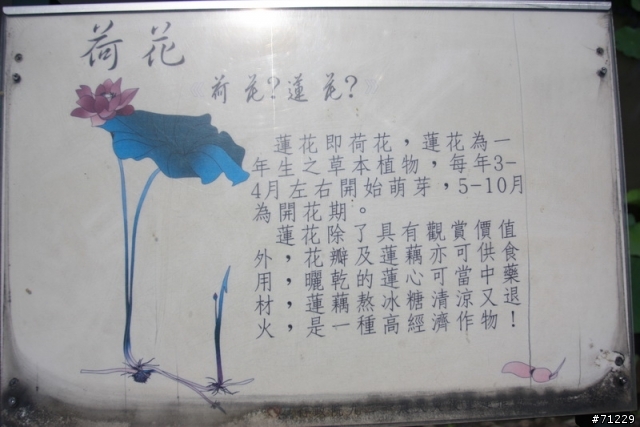 荷花
荷花?蓮花?
蓮花即荷花，蓮花為一
年生之草本植物，每年3-
4月左右開始萌芽，5-10月
為開花期。
蓮花除了具有觀賞價值
外，花瓣及蓮藕亦可供食
用，曬乾的蓮心可當中藥
材，蓮藕熬冰糖清涼又退
火，是一種高經濟作物！
#71229